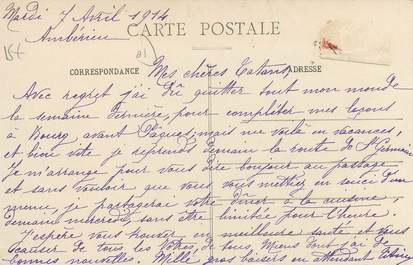 Mardi 7 Avril 1914
Ambérieu
CARTE POSTALE
CORRESPONDANCE
ADRESSE
Mes chères Tatans,
Avec regret j'ai dû quitter tout mon monde
la semaine dernière, pour compléter mes leçons
à Bourg avant Pâques, mais me voilà en vacances,
et bien vite je reprends demain la route de St Germain
Je m'arrange pour vous dire bonjour au passage
et sans vouloir que vous vous mettiez en souci d'un
menu, je partagerai votre dîner à la cuisine,
demain mercredi sans être limitée pour l'heure.
J'espère vous trouver en meilleure santé et vous
de tous les Vôtres, de tous, Mieux j'ai de
bonnes nouvelles. Mille gros baisers en attendant